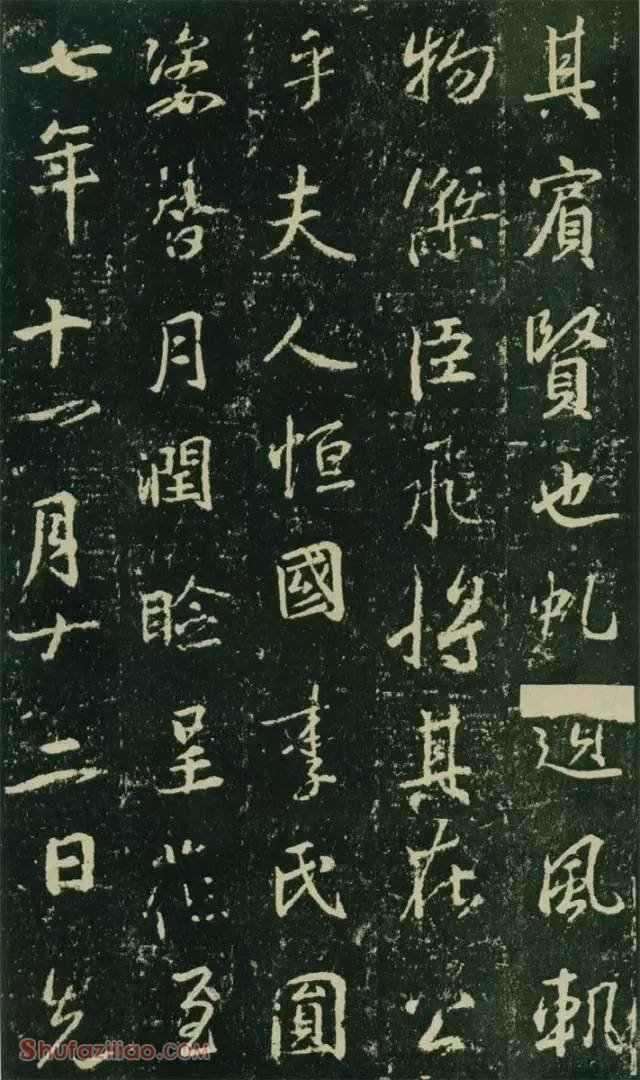 其賓賢也虬風軌
物傑臣飛將其在公
乎夫人恒國李氏圓
姿替月潤瞼呈花
七年十一月十二日
Shufaziliao.com